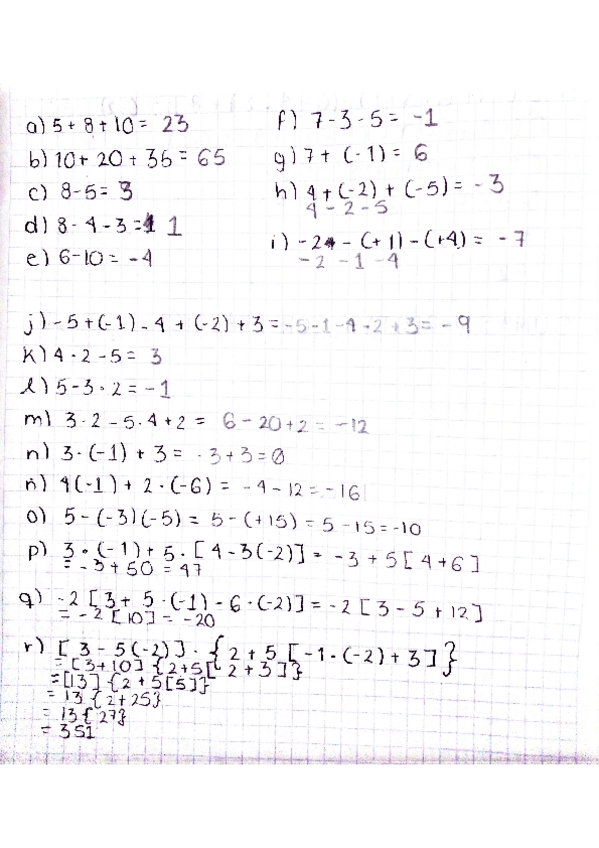 a) 5 + 8 + 10 = 23
b) 10 + 20 + 35 = 65
c) 8 - 5 = 3
d) 8 - 4 - 3 = 1
e) 6 - 10 = -4
f) 7 - 3 - 5 = -1
g) 7 + (-1) = 6
h) 4 + (-2) + (-5) = -3
4 - 2 - 5
i) -2 - (+1) - (+4) = -7
-2 -1 -4
j) -5 + (-1) - 4 + (-2) + 3 = -5 -1 -4 -2 + 3 = -9
k) 4 · 2 - 5 = 3
l) 5 - 3 · 2 = -1
m) 3 · 2 - 5 · 4 + 2 = 6 - 20 + 2 = -12
n) 3 · (-1) + 3 = -3 + 3 = 0
ñ) 4(-1) + 2 · (-6) = -4 - 12 = -16
o) 5 - (-3)(-5) = 5 - (+15) = 5 - 15 = -10
p) 3 · (-1) + 5 · [4 - 3(-2)] = -3 + 5[4 + 6]
= -3 + 50 = 47
q) -2 [3 + 5 · (-1) - 6 · (-2)] = -2 [3 - 5 + 12]
= -2 [10] = -20
r) [3 - 5(-2)] · {2 + 5 [-1 · (-2) + 3]}
= [3 + 10] {2 + 5[2 + 3]}
= [13] {2 + 5[5]}
= 13 {2 + 25}
= 13 {27}
= 351